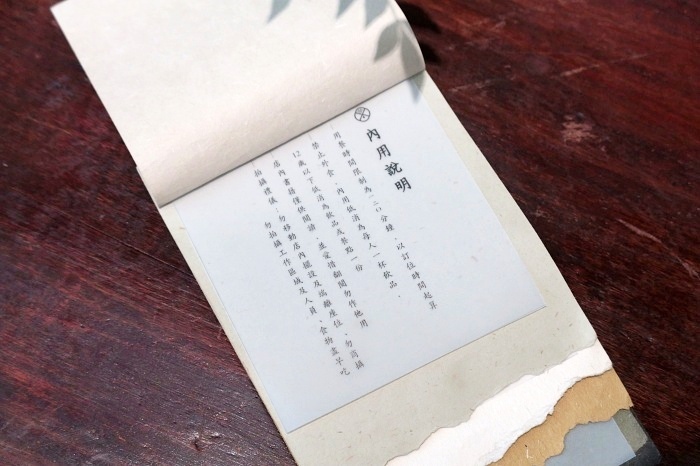 內用說明
用餐時間限制為一二〇分鐘、以訂位時間起算
禁止外食、內用低消為每人一杯飲品、
12歲以下低消為飲品或餐點一份
店內書籍僅供閱讀、並愛惜翻閱勿作他用
拍攝禮儀—勿移動店內擺設及端離座位、勿高攝
勿拍攝工作區域及人員、食物盡早吃